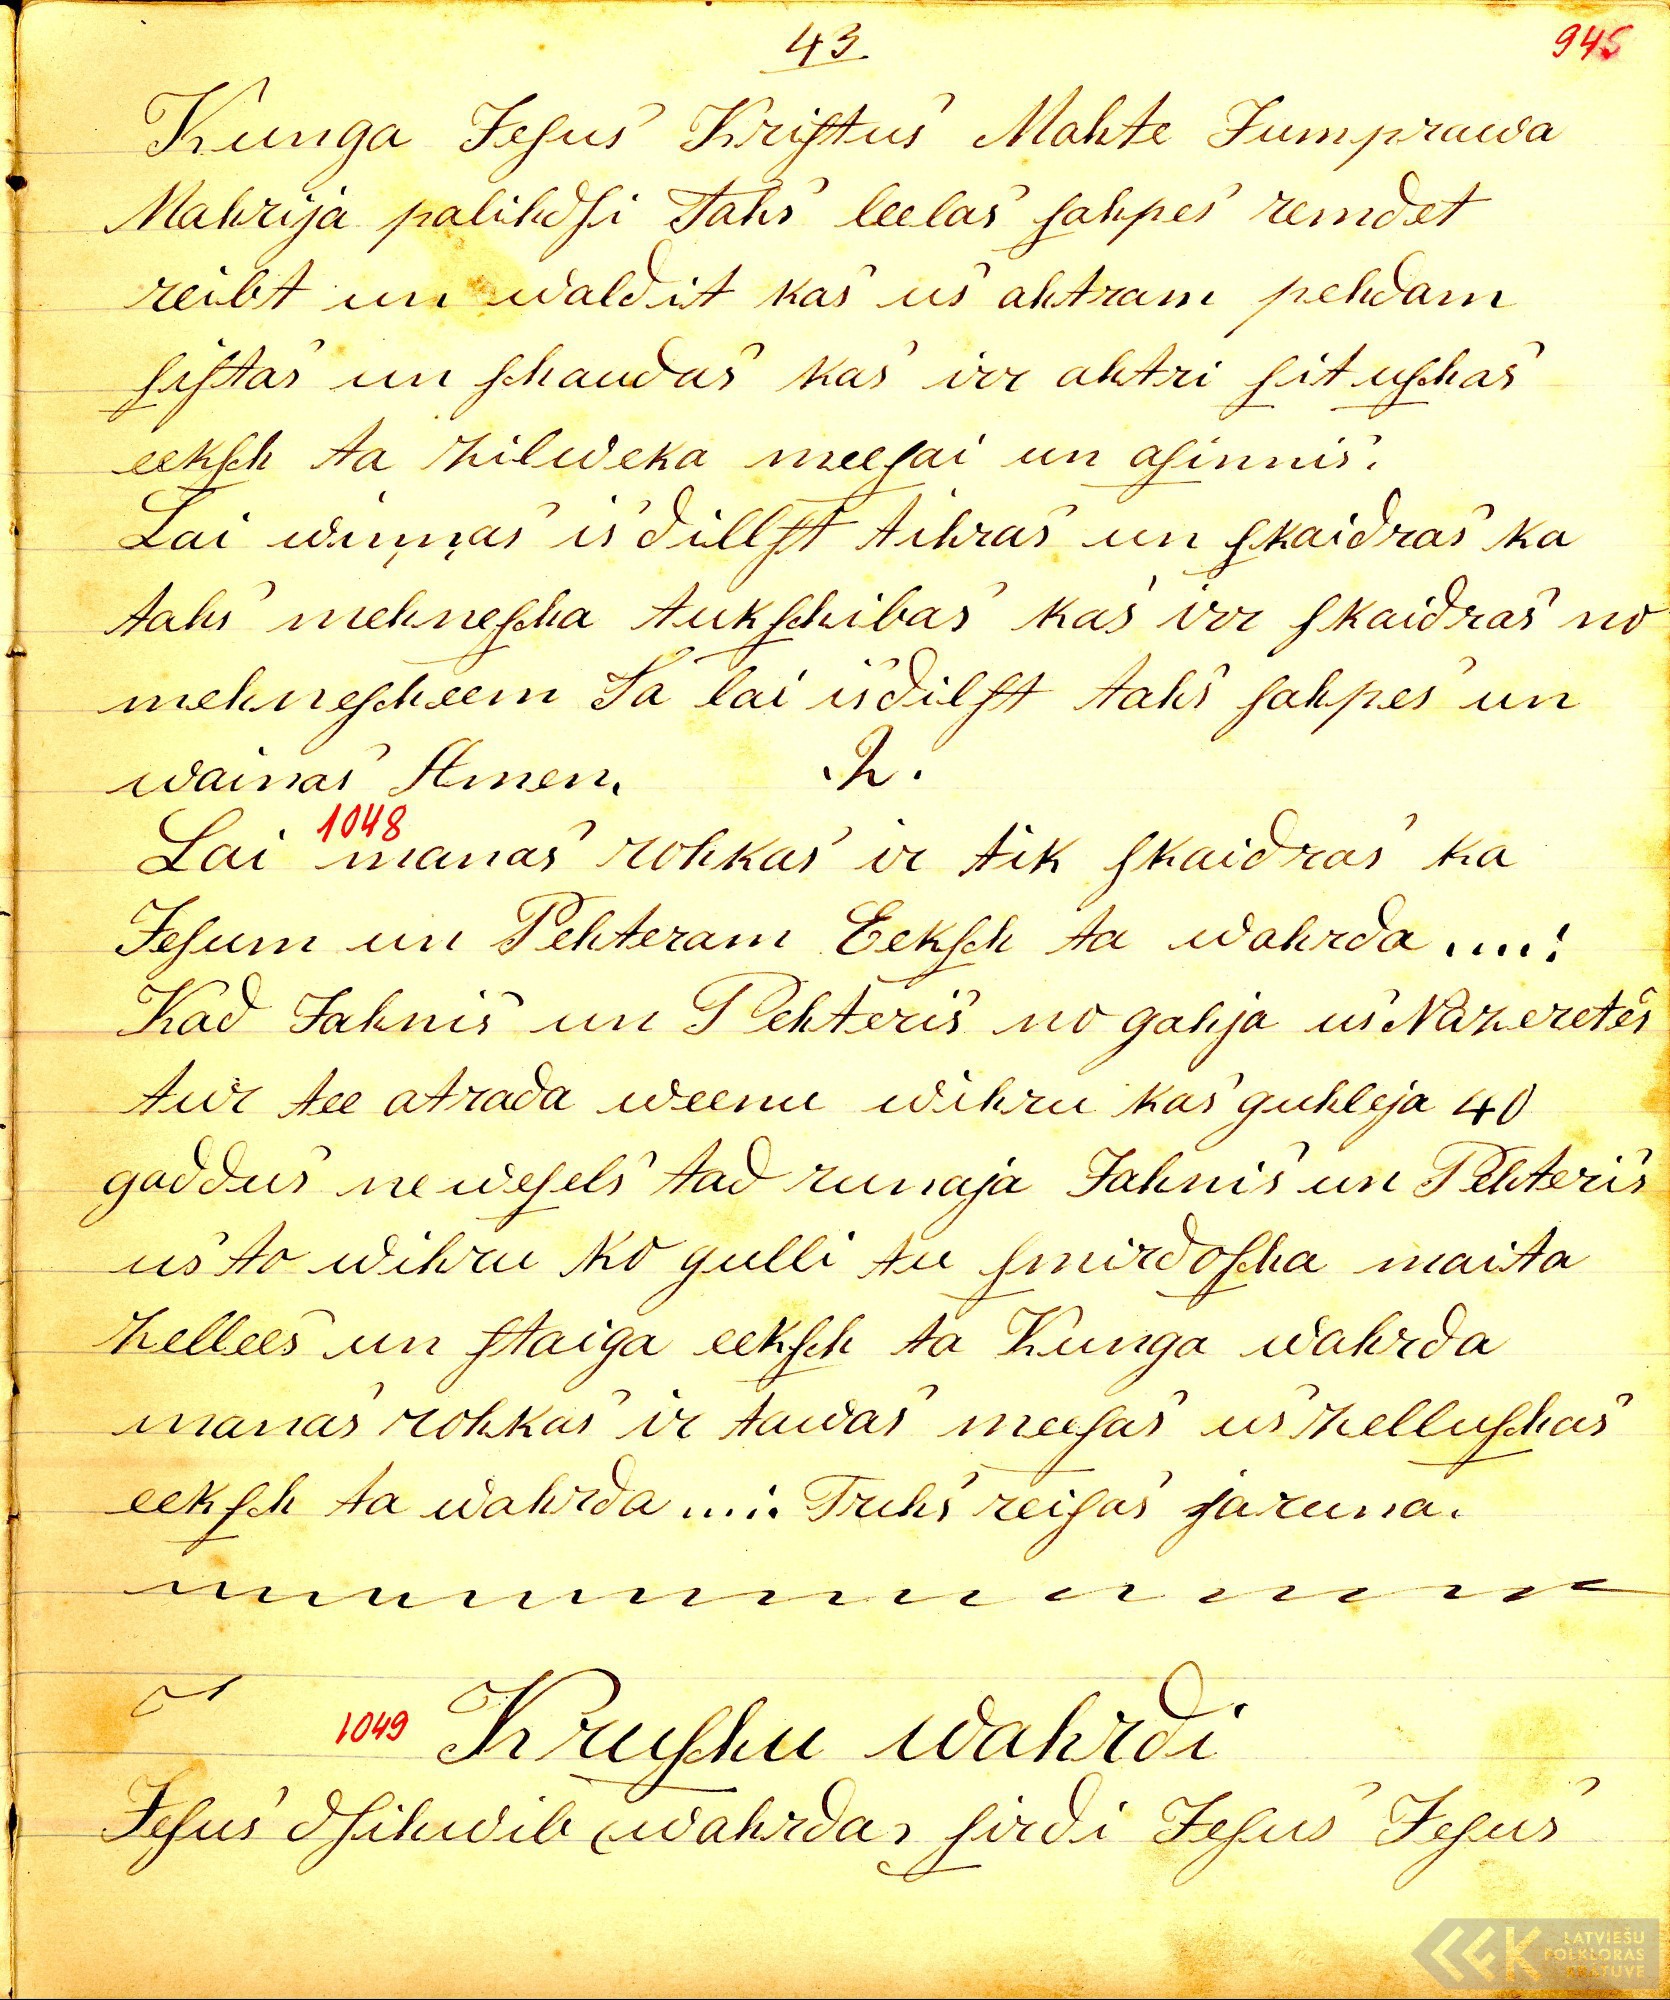 43.
945
Kunga Jeſus Kriſtus Mahte Jumprawa
Mahrija palihdſi Tahs leelas ſahpes remdet
reibt un waldit kas us ahtram pehdam
ſiſtas un ſchaudas kas irr ahtri ſituſchas
eekſch ta zilweka meeſai un aſinnis.
Lai win̦n̦as isdillſt tihras un ſkaidras ka
tahs mehneſcha tukſchibas kas irr ſkaidras no
mehneſcheem Ta lai isdilſt tahs ſahpes un
wainas Amen. .2.
1048
Lai manas rohkas ir tik ſkaidras ka
Jeſum un Pehteram Eekſch ta wahrda ....:
Kad Jahnis un Pehteris no gahja us Nazeretes
tur tee atrada weenu wihru kas guhleja 40
gaddus ne weſels tad runaja Jahnis un Pehteris
us to wihru ko gulli tu ſmirdoſcha maita
zellees un ſtaiga eekſch ta Kunga wahrda
manas rohkas ir tawas meeſas us zelluſchas
eekſch ta wahrda ...:. Trihs reiſas jaruna.
1049 Kruſchu wahrdi
Jeſus dſihwib wahrda, ſirdi Jeſus Jeſus
LATVIEŠU
FOLKLORAS
KRĀTUVE